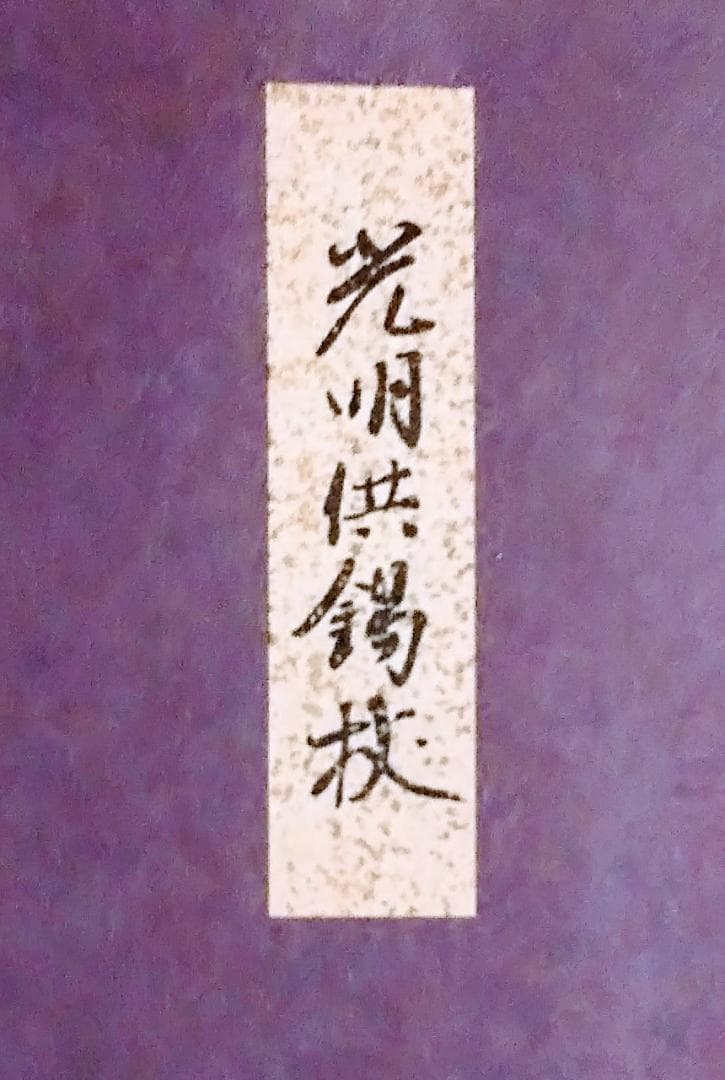 光明供錫杖